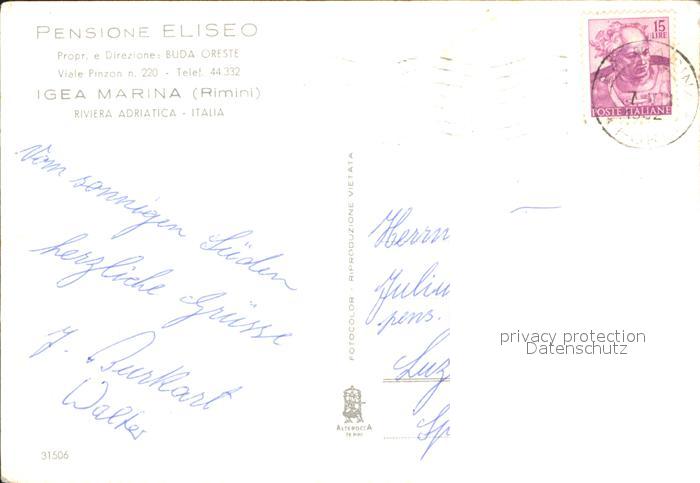 PENSIONE ELISEO
Propr. e Direzione: BUDA ORESTE
Viale Pinzon n. 220 - Telef. 44.332
IGEA MARINA (Rimini)
RIVIERA ADRIATICA - ITALIA
15
LIRE
POSTE ITALIANE
Vom sonnigen Süden
herzliche Grüsse
J. Burkart
Walter
31506
FOTOCOLOR - RIPRODUZIONE VIETATA
ALTEROCCA
TERNI
Herrn
Juliu
pens.
Luz
Sp
privacy protection
Datenschutz